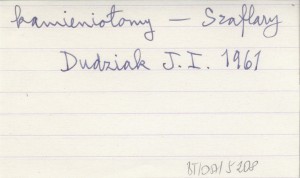 kamieniołomy — Szaflary
Dudziak J. I. 1961
BT/OA/5208